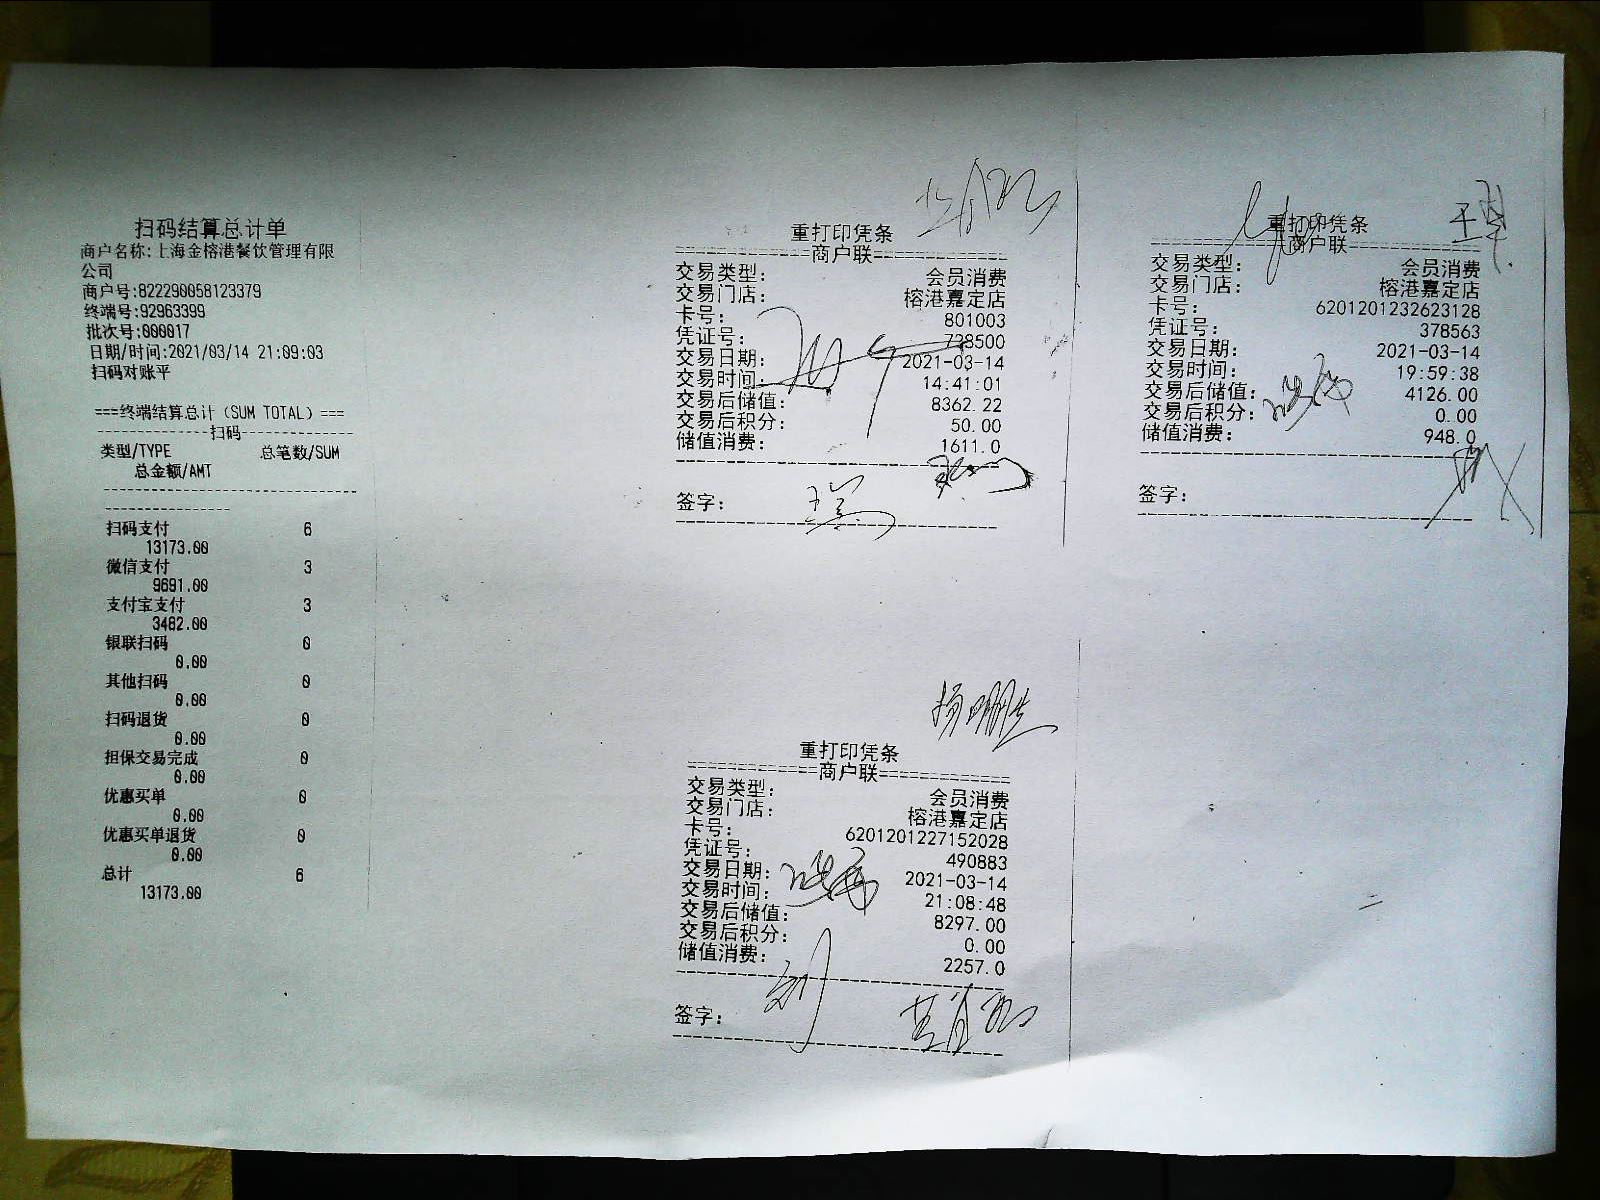 扫码结算总计单
商户名称:上海金榕港餐饮管理有限
公司
商户号:822290058123379
终端号:92963399
批次号:000017
日期/时间:2021/03/14 21:09:03
扫码对账平
===终端结算总计(SUM TOTAL)===
--------------扫码--------------
类型/TYPE 总笔数/SUM
总金额/AMT
扫码支付 6
13173.00
微信支付 3
9691.00
支付宝支付 3
3482.00
银联扫码 0
0.00
其他扫码 0
0.00
扫码退货 0
0.00
担保交易完成 0
0.00
优惠买单 0
0.00
优惠买单退货 0
0.00
总计 6
13173.00
重打印凭条
============商户联============
交易类型: 会员消费
交易门店: 榕港嘉定店
卡号: 801003
凭证号: 738500
交易日期: 2021-03-14
交易时间: 14:41:01
交易后储值: 8362.22
交易后积分: 50.00
储值消费: 1611.0
签字:
重打印凭条
============商户联============
交易类型: 会员消费
交易门店: 榕港嘉定店
卡号: 6201201232623128
凭证号: 378563
交易日期: 2021-03-14
交易时间: 19:59:38
交易后储值: 4126.00
交易后积分: 0.00
储值消费: 948.0
签字:
重打印凭条
============商户联============
交易类型: 会员消费
交易门店: 榕港嘉定店
卡号: 6201201227152028
凭证号: 490883
交易日期: 2021-03-14
交易时间: 21:08:48
交易后储值: 8297.00
交易后积分: 0.00
储值消费: 2257.0
签字: